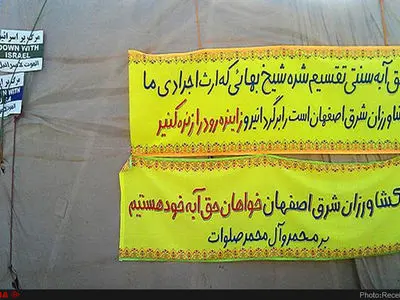 مرگ بر اسرائیل
DOWN WITH
ISRAEL
مرگ بر اسرا
حق آبه سنتی تقسیم شده شیخ بهائی که ارث اجدادی ما
کشاورزان شرق اصفهان است را برگردانیر و زاینده رود را زنده کنیر
کشاورزان شرق اصفهان خواهان حق آبه خود هستیم
بر محمد و آل محمد صلوات
Photo:Recei